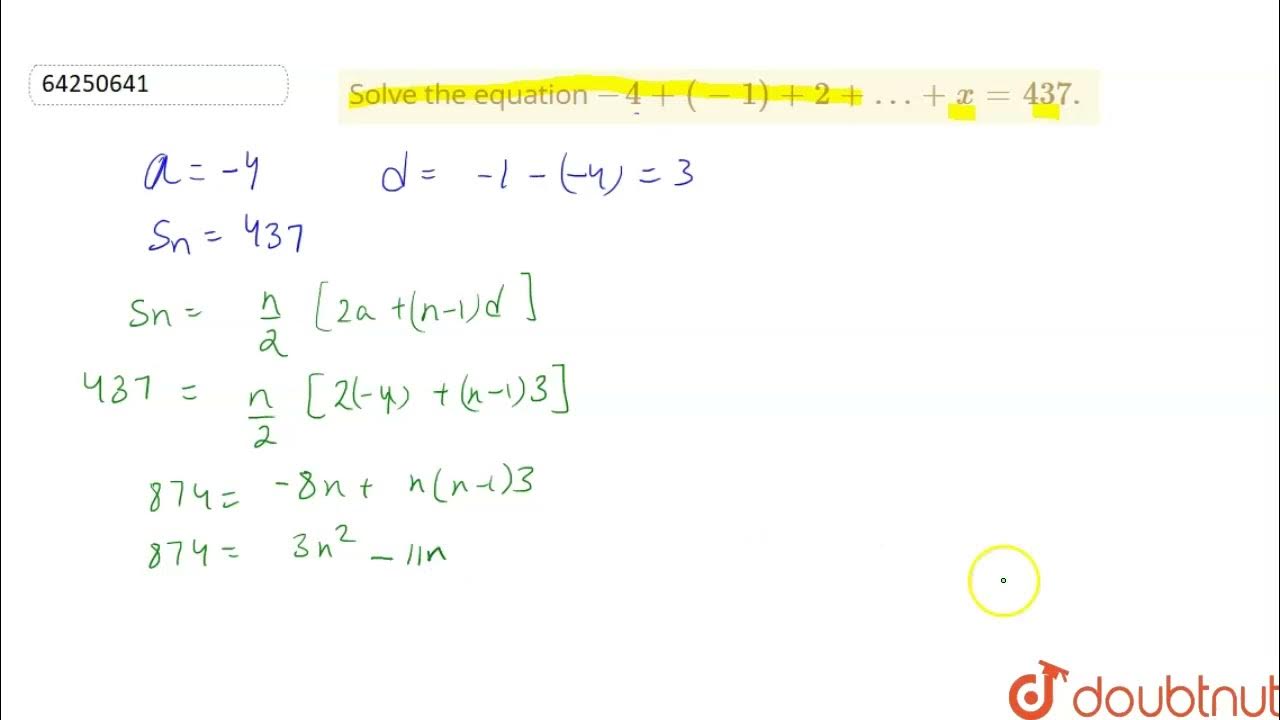 64250641
Solve the equation −4 + ( − 1) + 2 + … + x = 437.
a = -4 d = -1 - (-4) = 3
Sn = 437
Sn = n/2 [2a + (n-1)d]
437 = n/2 [2(-4) + (n-1)3]
874 = -8n + n(n-1)3
874 = 3n² - 11n
doubtnut